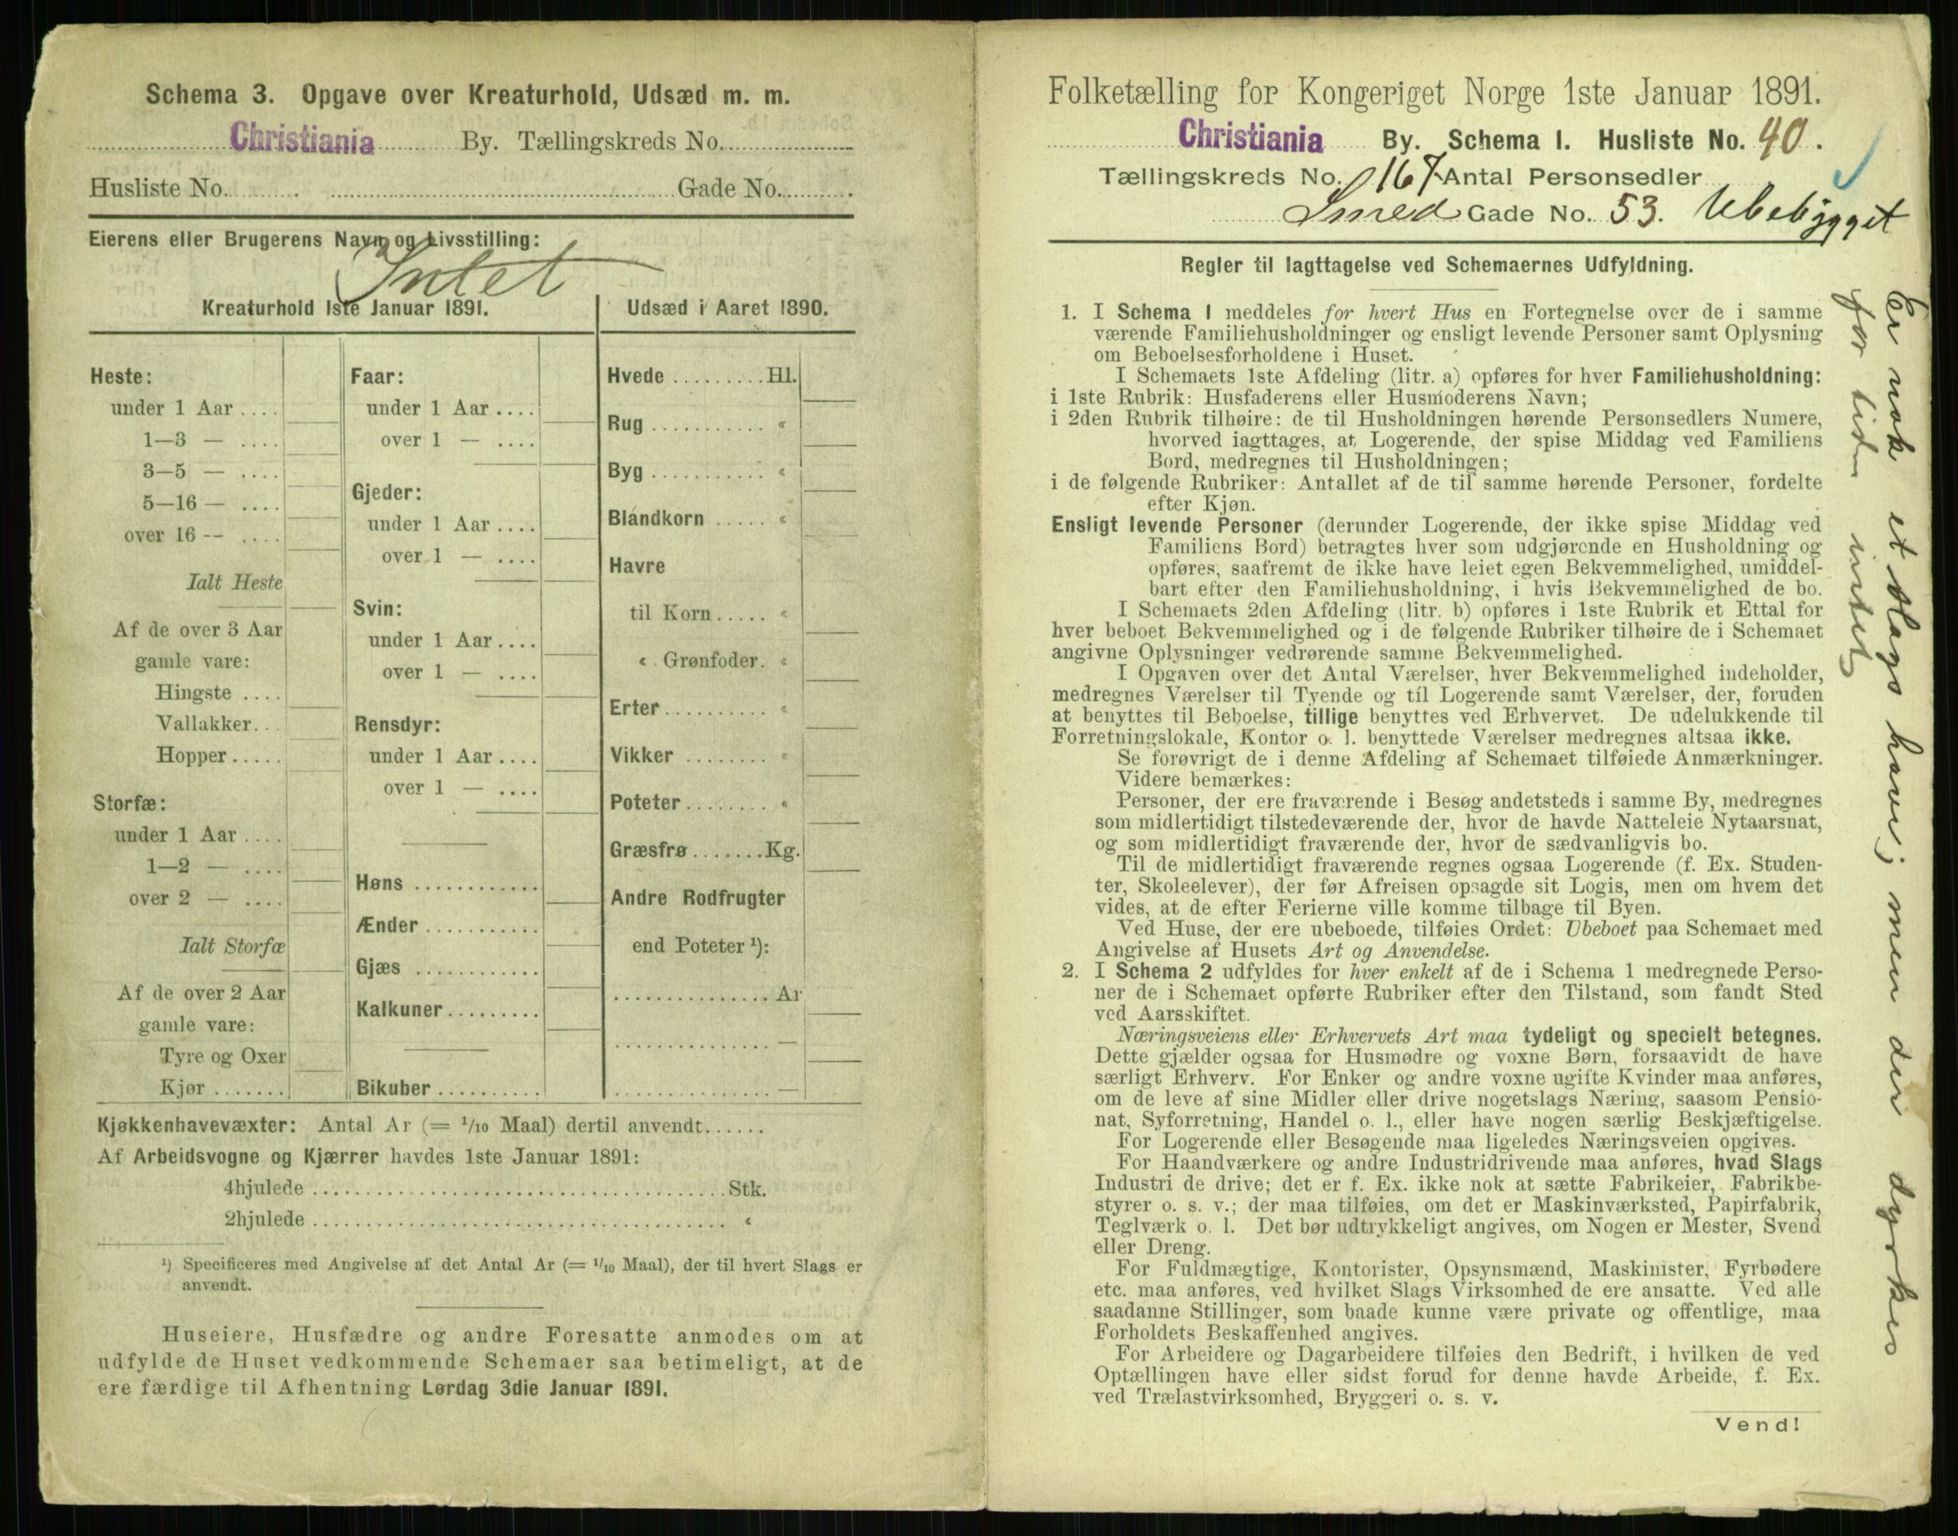 Schema 3. Opgave over Kreaturhold, Udsæd m. m.
Christiania By. Tællingskreds No.
Husliste No. Gade No.
Eierens eller Brugerens Navn og Livsstilling:
Intet
Kreaturhold 1ste Januar 1891.
Heste:
under 1 Aar
1—3 —
3—5 —
5—16 —
over 16 —
Ialt Heste
Af de over 3 Aar
gamle vare:
Hingste
Vallakker
Hopper
Storfæ:
under 1 Aar
1—2 —
over 2 —
Ialt Storfæ
Af de over 2 Aar
gamle vare:
Tyre og Oxer
Kjør
Faar:
under 1 Aar
over 1 —
Gjeder:
under 1 Aar
over 1 —
Svin:
under 1 Aar
over 1 —
Rensdyr:
under 1 Aar
over 1 —
Høns
Ænder
Gjæs
Kalkuner
Bikuber
Udsæd i Aaret 1890.
Hvede Hl.
Rug «
Byg «
Blandkorn «
Havre
til Korn «
« Grønfoder «
Erter «
Vikker «
Poteter «
Græsfrø Kg.
Andre Rodfrugter
end Poteter ¹):
Ar
—
—
Kjøkkenhavevæxter: Antal Ar (= ¹/₁₀ Maal) dertil anvendt
Af Arbeidsvogne og Kjærrer havdes 1ste Januar 1891:
4hjulede Stk.
2hjulede «
¹) Specificeres med Angivelse af det Antal Ar (= ¹/₁₀ Maal), der til hvert Slags er
anvendt.
Huseiere, Husfædre og andre Foresatte anmodes om at
udfylde de Huset vedkommende Schemaer saa betimeligt, at de
ere færdige til Afhentning Lørdag 3die Januar 1891.
Folketælling for Kongeriget Norge 1ste Januar 1891.
Christiania By. Schema I. Husliste No. 40.
Tællingskreds No. 167 Antal Personsedler
Smed Gade No. 53. Ubebygget
Regler til Iagttagelse ved Schemaernes Udfyldning.
1. I Schema I meddeles for hvert Hus en Fortegnelse over de i samme
værende Familiehusholdninger og ensligt levende Personer samt Oplysning
om Beboelsesforholdene i Huset.
I Schemaets 1ste Afdeling (litr. a) opføres for hver Familiehusholdning:
i 1ste Rubrik: Husfaderens eller Husmoderens Navn;
i 2den Rubrik tilhøire: de til Husholdningen hørende Personsedlers Numere,
hvorved iagttages, at Logerende, der spise Middag ved Familiens
Bord, medregnes til Husholdningen;
i de følgende Rubriker: Antallet af de til samme hørende Personer, fordelte
efter Kjøn.
Ensligt levende Personer (derunder Logerende, der ikke spise Middag ved
Familiens Bord) betragtes hver som udgjørende en Husholdning og
opføres, saafremt de ikke have leiet egen Bekvemmelighed, umiddel-
bart efter den Familiehusholdning, i hvis Bekvemmelighed de bo.
I Schemaets 2den Afdeling (litr. b) opføres i 1ste Rubrik et Ettal for
hver beboet Bekvemmelighed og i de følgende Rubriker tilhøire de i Schemaet
angivne Oplysninger vedrørende samme Bekvemmelighed.
I Opgaven over det Antal Værelser, hver Bekvemmelighed indeholder,
medregnes Værelser til Tyende og til Logerende samt Værelser, der, foruden
at benyttes til Beboelse, tillige benyttes ved Erhvervet. De udelukkende til
Forretningslokale, Kontor o. l. benyttede Værelser medregnes altsaa ikke.
Se forøvrigt de i denne Afdeling af Schemaet tilføiede Anmærkninger.
Videre bemærkes:
Personer, der ere fraværende i Besøg andetsteds i samme By, medregnes
som midlertidigt tilstedeværende der, hvor de havde Natteleie Nytaarsnat,
og som midlertidigt fraværende der, hvor de sædvanligvis bo.
Til de midlertidigt fraværende regnes ogsaa Logerende (f. Ex. Studen-
ter, Skoleelever), der før Afreisen opsagde sit Logis, men om hvem det
vides, at de efter Ferierne ville komme tilbage til Byen.
Ved Huse, der ere ubeboede, tilføies Ordet: Ubeboet paa Schemaet med
Angivelse af Husets Art og Anvendelse.
2. I Schema 2 udfyldes for hver enkelt af de i Schema 1 medregnede Perso-
ner de i Schemaet opførte Rubriker efter den Tilstand, som fandt Sted
ved Aarsskiftet.
Næringsveiens eller Erhvervets Art maa tydeligt og specielt betegnes.
Dette gjælder ogsaa for Husmødre og voxne Børn, forsaavidt de have
særligt Erhverv. For Enker og andre voxne ugifte Kvinder maa anføres,
om de leve af sine Midler eller drive nogetslags Næring, saasom Pensio-
nat, Syforretning, Handel o. l., eller have nogen særlig Beskjæftigelse.
For Logerende eller Besøgende maa ligeledes Næringsveien opgives.
For Haandværkere og andre Industridrivende maa anføres, hvad Slags
Industri de drive; det er f. Ex. ikke nok at sætte Fabrikeier, Fabrikbe-
styrer o. s. v.; der maa tilføies, om det er Maskinværksted, Papirfabrik,
Teglværk o. l. Det bør udtrykkeligt angives, om Nogen er Mester, Svend
eller Dreng.
For Fuldmægtige, Kontorister, Opsynsmænd, Maskinister, Fyrbødere
etc. maa anføres, ved hvilket Slags Virksomhed de ere ansatte. Ved alle
saadanne Stillinger, som baade kunne være private og offentlige, maa
Forholdets Beskaffenhed angives.
For Arbeidere og Dagarbeidere tilføies den Bedrift, i hvilken de ved
Optællingen have eller sidst forud for denne havde Arbeide, f. Ex.
ved Trælastvirksomhed, Bryggeri o. s. v.
Vend!
Er nok et slags have; men der dyrkes
for tiden intet